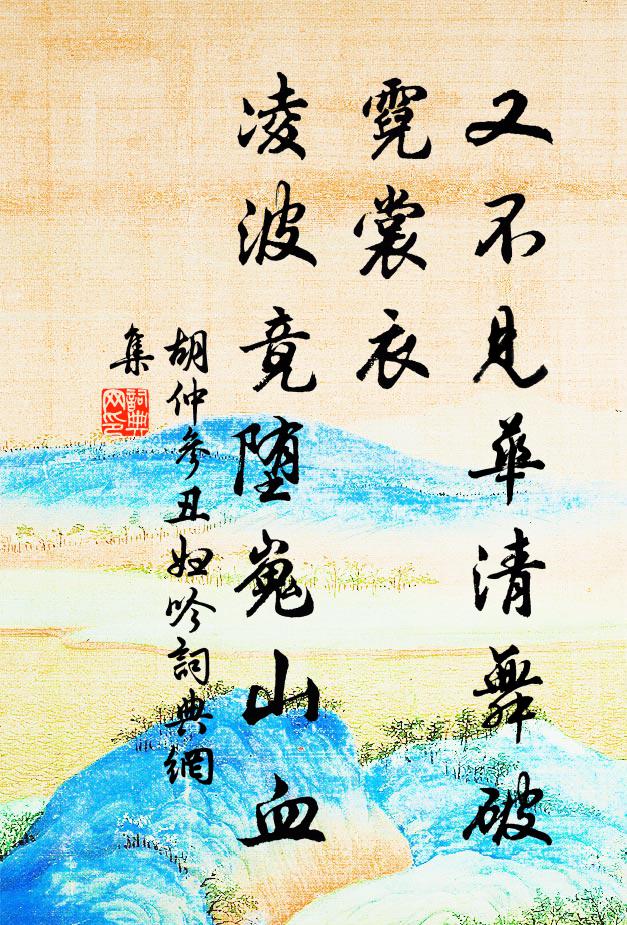 又不见華清舞破
霓裳衣
凌波竟堕嵬山血
胡仲參丑妇吟詞典網
集
詞典
网印